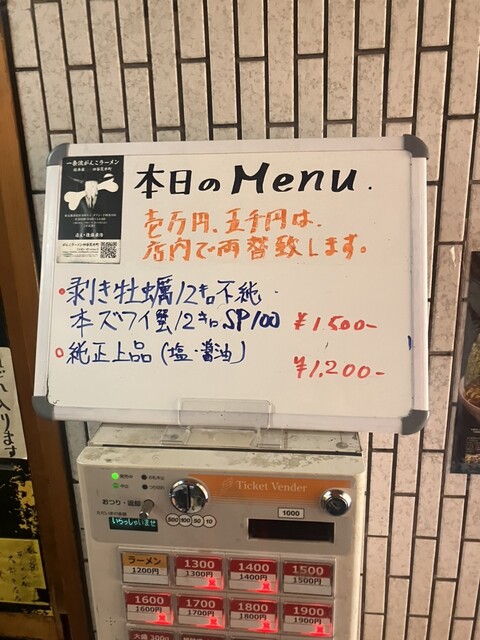 一条流がんこラーメン
本日のMenu.
壱万円、五千円は、
店内で両替致します。
剥き牡蠣12キロ不純
本ズワイ蟹12キロSP100 ¥1.500-
純正上品(塩・醤油) ¥1.200-
Ticket Vender
おつり・返却
いらっしゃいませ
500 100 50 10
1000
ラーメン 1200円
1300 1300円
1400 1400円
1500 1500円
1600 1600円
1700 1700円
1800 1800円
1900 1900円
大盛 300円